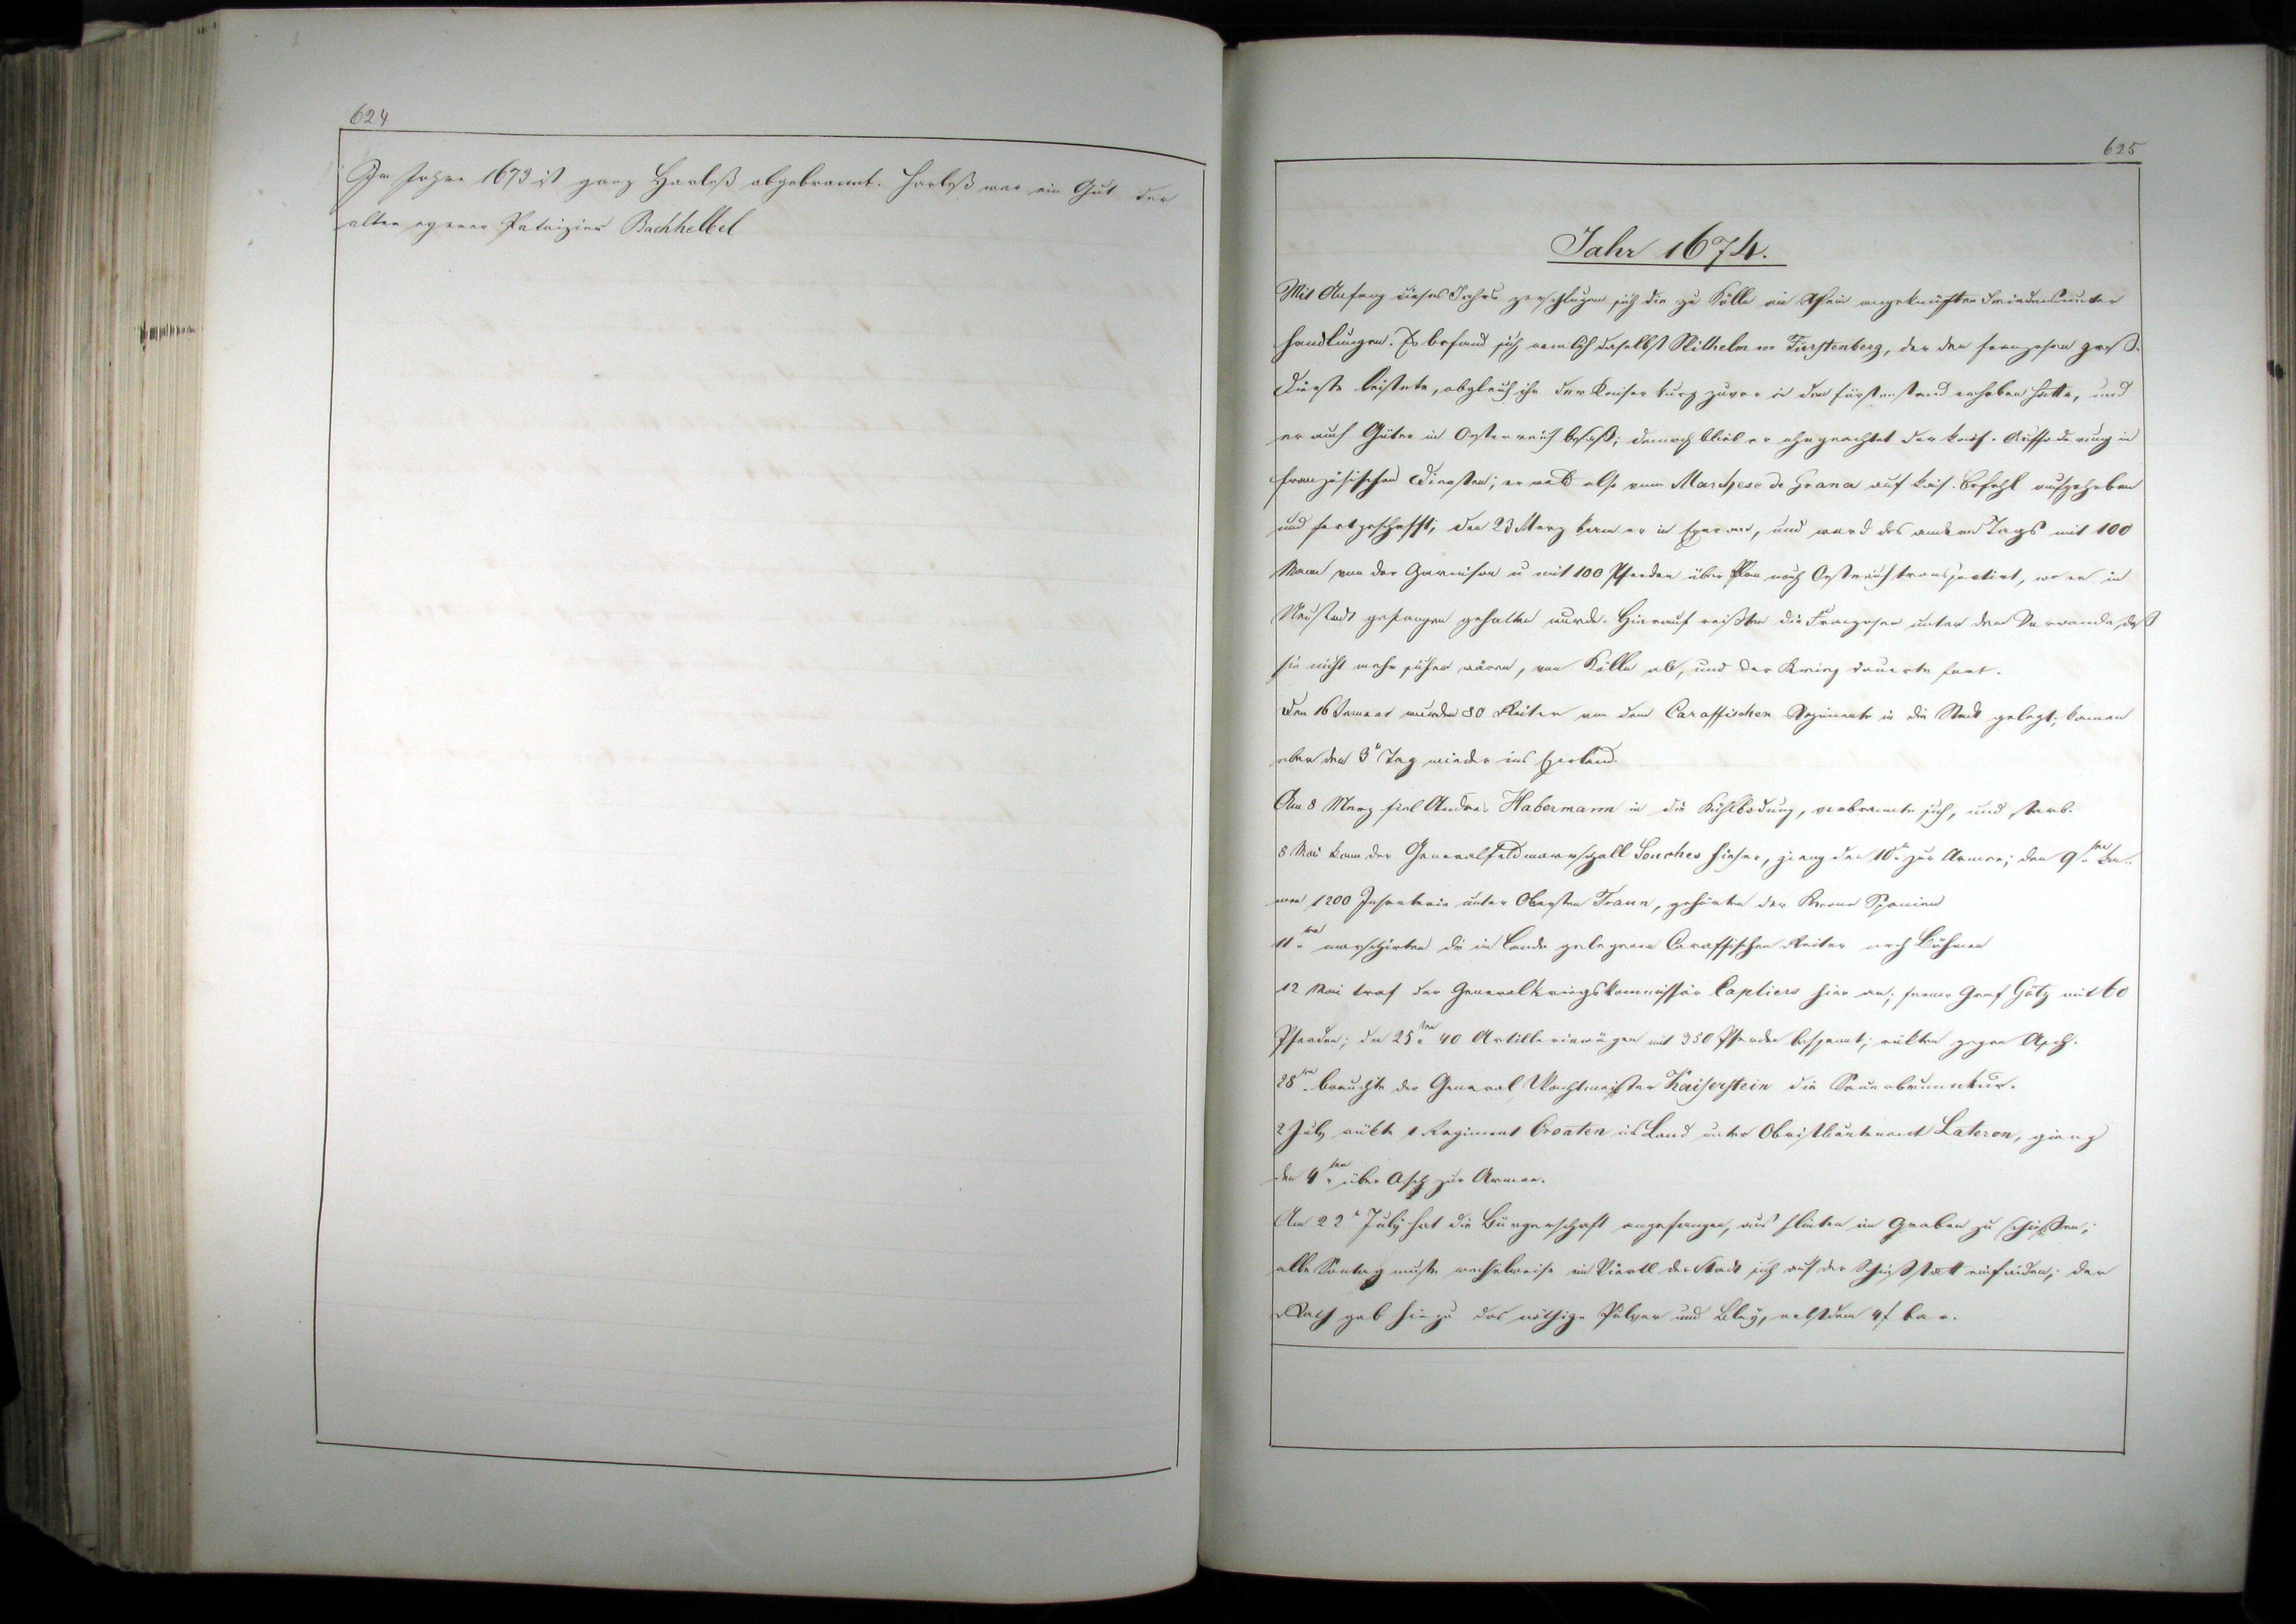 624
Im Jahre 1673 ist ganz Harleß abgebrannt. Harleß war ein Gut der
alten egerer Patrizier Bachhelbel
625
Jahr 1674.
Mit Anfang dieses Jahrs zerschlugen sich die zu Kölln am Rhein angeknüpften Friedensunter
handlungen. Es befand sich nemlich daselbst Wilhelm von Fürstenberg, der den franzosen große
Dienste leistete, obgleich ihn der Kaiser kurz zuvor in den fürstenstand erhoben hatte, und
er auch Güter in Oesterreich besaß; dennoch blieb er ohngeachtet der kais. Aufforderung in
französischen Diensten; er ward also vom Marchese de Grana auf kais. Befehl aufgehoben
und fortgeschafft; den 23 Merz kam er in Eger an, und ward des andern Tags mit 100
Mann von der Garnison u mit 100 Pferden über Plan nach Oestreich transportirt, wo er in
Neustadt gefangen gehalten wurde. Hierauf reißten die Franzosen unter dem Vorwande, daß
sie nicht mehr sicher wären, von Kölln ab, und der Krieg dauerte fort.
Den 16 Jenner wurden 80 Reiter von dem Caraffischen Regimente in die Stadt gelegt; kamen
aber den 3t Tag wieder ins Egerland.
Am 8 Merz fiel Andreas Habermann in die , verbrannte sich, und starb.
8 Mai kam der Generalfeldmarschall Souches hieher, gieng den 10tn zur Armee; den 9ten ka-
men 1200 Infanterie unter Obersten Traun, gehörten der Krone Spanien
11ten marschirten die im Lande gelegenen Caraffischen Reiter nach Böhmen
12 Mai traf der Generalkriegskommissär Capliers hier an; ferner Graf Götz mit 60
Pferden; den 25ten 40 Artilleriewägen mit 350 Pferden bespannt; rükten gegen Asch.
28ten brauchte der General Wachtmeister Kaiserstein die Sauerbrunnkur.
2 July rükte 1 Regiment Croaten ins Land unter Obristlieutenant Lateron, gieng
den 4ten über Asch zur Armee.
Am 22t July hat die Bürgerschaft angefangen, aus flinten im Graben zu schießen;
alle Sontag mußte wechselweise ein Viertl der Stadt sich auf der Schießstatt einfinden; der
Rath gab hiezu das nöthige Pulver und Bley, nebstdem 4f bar.